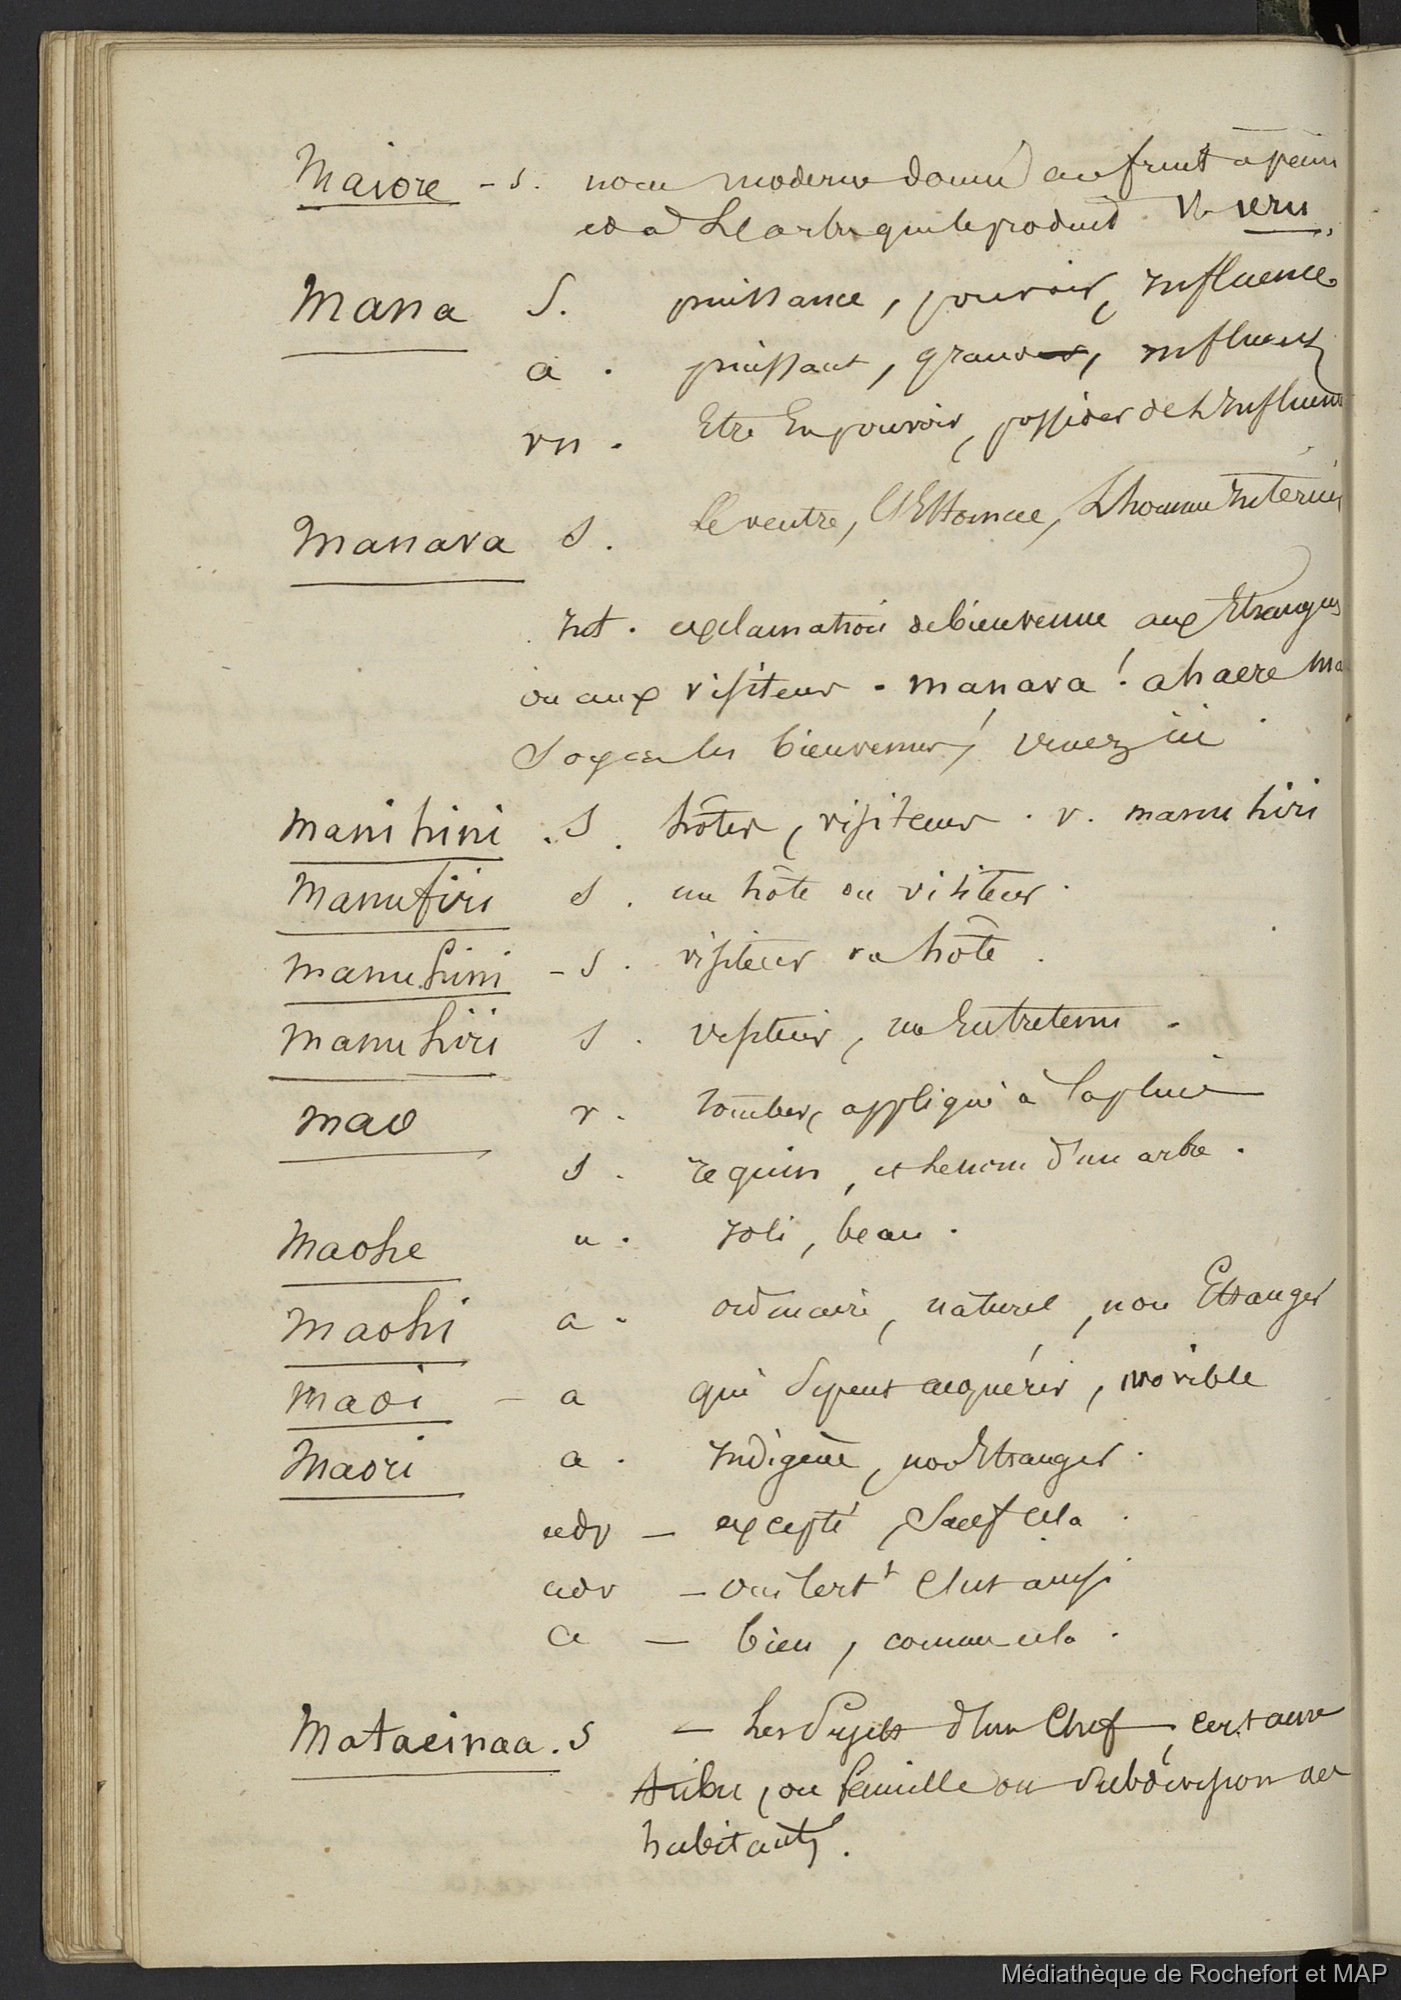 Maiore - s. nom moderne donné au fruit à pain
et à L'arbre qui le produit. V. uru.
Mana S. puissance, pouvoir, influence
a. puissant, grand, influent
vn. Etre En pouvoir, posséder de L'influence
Manava S. Le ventre, l'Estomac, L'homme Intérieur
Int. exclamation de bienvenue aux Etrangers
ou aux visiteurs - manava! a haere ma
Soyez les bienvenus! venez ici
Manihini . S. hôtes, visiteurs. v. manuhiri
Manufiri S. un hôte ou visiteur.
Manuhini - S. visiteur ou hôte.
Manuhiri S. visiteur, un Entretenu.
mao v. tomber, appliqué à la pluie
S. requin, et le nom d'un arbre.
Maohe a. Joli, beau.
Maohi a. ordinaire, naturel, non Etranger
Maoi - a qui se peut acquérir,
Maori a. Indigène, non Etranger.
adv - excepté, Sauf cela.
adv - oui certt C'est ainsi
a - bien, comme cela.
Mataeinaa. S - Les Sujets d'un Chef, certaine
tribu, ou famille ou subdivision des
habitants.
Médiathèque de Rochefort et MAP